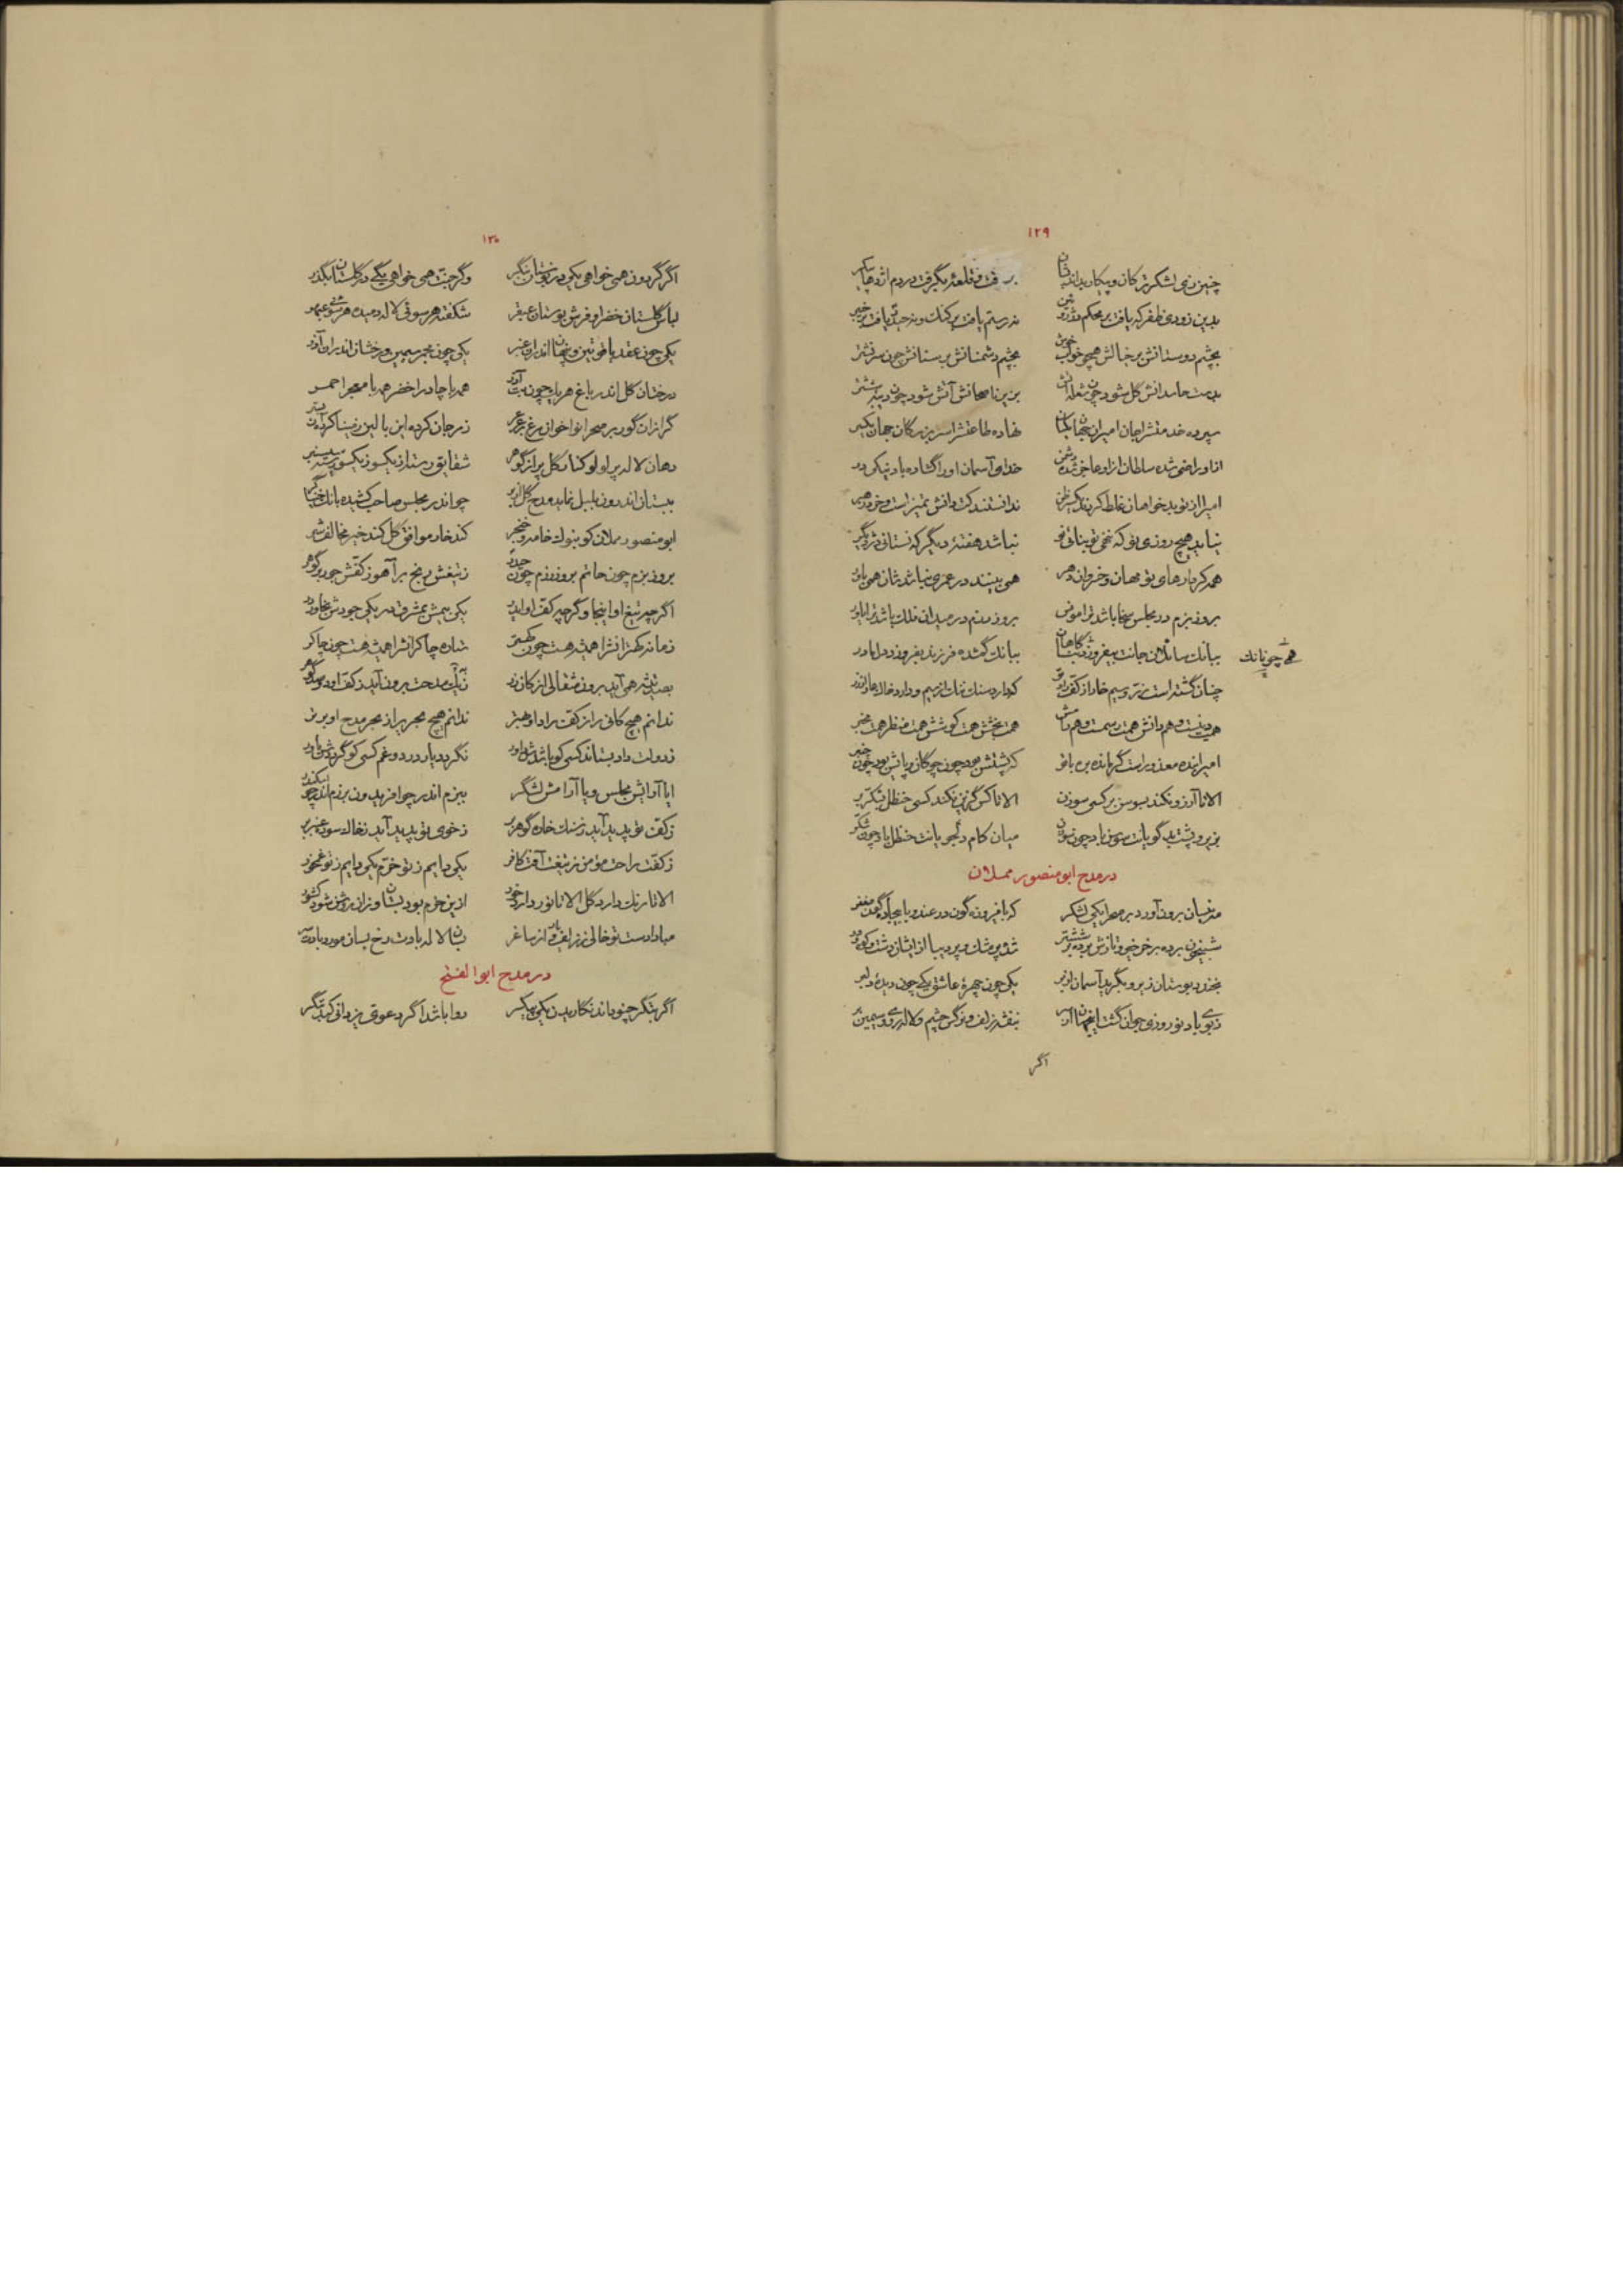 ۱۲۹
چنین زی لشکر ترکان و پیکار بداندیشان برفت و قلعهٔ بگرفت در دم اژدها پیکر
بدین زودی ظفر که یافت بر محکم نه رستم یافت بر کنک و نه حیدر یافت بر خیبر
بچشم دوستانش بر خیالش همچو خواب خوش بچشم دشمنانش بر سنانش چون سر نشتر
بدست حاسدانش گل شود چون شعله آتش بزیر ناصحانش آتش شود چون دیبه ششتر
سپرده خدمتش را جان امیران جهان یکسان نهاده طاعتش را سر بزرگان جهان یکسر
از او راضی شده سلطان از او عاجز شده دشمن خدای آسمان او را گشاده باد نیکی در
امیرا از تو بدخواهان غلط کردند یکسر ظن ندانستند کت دانش تمیز است و خرد رهبر
نیاید هیچ روزی نو که فخی تو بنائی نو نباشد هفتهٔ دیگر که نستانی دژ دیگر
همه کردارهای تو مهان و خسروان دهر همی بینند در عمری نباشدشان همی باور
بروز بزم در مجلس سخا باشد ترا مونس بروز رزم در میدان فلک باشد ترا یاور
ببانک سائلان جانت بیفروزد بناگاهان ببانک گمشده فرزند بفروزد دل مادر
همی چو بانک
چنان گشته است زر و سیم خوار از کف راد تو که دارد سنک ننک از سیم و دارد خاک عار از زر
همت دینست و هم دانش همت رسمست و هم رامش همت بخشش همت کوشش همت منظر همت مخبر
امیرا بنده معذور است گر مانده بره باز کش پشتش بود چون چوگان و پایش بود چون چنبر
الا تا آرزو نکند بسوسن بر کسی سوزن الا تا کس گزین نکند کسی حنظل بشکر بر
بزیر پشت بدگویانت سوسن باد چون سوزن میان کام دلجویانت حنظل باد چون شکر
در مدح ابو منصور مملان
مه نیسان برون آورد بر صحرا یکی لشکر که با فیروزه گون درعند و با بیجاده گون مغفر
شبیخون برده بر خرخیز و تازش برده بر ششتر شده پر مشک و پر دیبا از ایشان دشت و کوه و در
بخندد بوستان زیر و بگرید آسمان از بر یکی چون چهرهٔ عاشق یکی چون دیدهٔ دلبر
ز بوی باد نوروزی جوان گشت این جهان از سر بنفشه زلف و نرگس چشم و لاله روی و سیمین بر
اگر
۱۳۰
اگر گردون همی خواهی یکی در بوستان بنگر وگر جنت همی خواهی یکی در گلستان بگذر
لباس گلستان خضرا و فرش بوستان عبقر شکفته هر سوئی لاله دمیده هر سوئی عبهر
یکی چون عقد یاقوتین و پنهان اندر آن عنبر یکی چون مجمر سیمین و رخشان اندر آن آذر
درختان گل اندر باغ هر یک چون بت آزر همه با چادر اخضر همه با معجر احمر
گرازان گور بر صحرا نواخوان مرغ بر عرعر ز مرجان کرده این بالین ز مینا کرده آن بستر
دهان لاله پر لولو کنار گل پر از گوهر شقایق رسته از یکسو ز یکسو رسته سیسنبر
ببستان اندرون بلبل نماید مدح گل از بر چو اندر مجلس صاحب کشیده بانک خنیاگر
ابو منصور مملان کو بنوک خامه و خنجر کند خار موافق گل کند خیر مخالف شر
بروز بزم چون حاتم بروز رزم چون حیدر ز تیغش رنج بر آهو ز کفش جور بر گوهر
اگر چه تیغ او اینجا وگر چه کف او ایدر یکی بیمش بمشرق در یکی جودش بخاور در
زمانه کهترانش را همیشه هست چون کهتر ستاره چاکرانش را همیشه هست چون چاکر
بصد تیشه همی آید برون مثقالی از کان زر ز یک مدحت برون آید ز کف او دو صد گوهر
ندانم هیچ کانی را ز کف راد او هنبر ندانم هیچ بحر پر از بحر مدح او برتر
ز دولت داد بستاند کسی کو باشدش داور نگردد یار درد و غم کسی کو گرددش یاور
ایا آرایش مجلس و یا آرامش لشگر ببزم اندر چو افریدون برزم اندر چو اسکندر
ز کف تو پدید آید ز سنک خاره گوهر بر ز خوی تو پدید آید ز خاک سوده عنبر بر
ز کفت راحت مؤمن ز تیغت آفت کافر یکی دایم ز تو خرم یکی دایم ز تو غمخور
الا تا رنک دارد گل الا تا نور دارد خور از این خرم بود بستان وز آن روشن شود کشور
مبادا دست تو خالی ز زلف یار و از ساغر بسان لاله بادت رخ بسان مورد بادت سر
در مدح ابو الفتح
اگر بتگر چنو داند نگاریدن یکی پیکر روا باشد اگر دعوی یزدانی کند بتگر